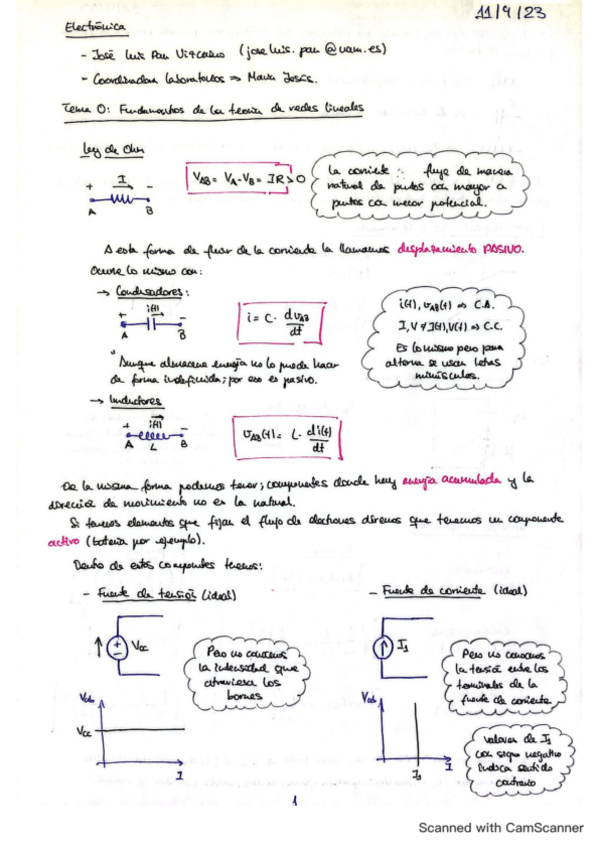 11/9/23
Electrónica
- José Luis Pau Vizcaíno (jose luis. pau @uam.es)
- Coordinadora laboratorios => María Jesús.
Tema 0: Fundamentos de la teoría de redes lineales
Ley de Ohm
I
+ -
A B
V_AB = V_A - V_B = IR > 0
La corriente fluye de manera
natural de puntos con mayor a
puntos con menor potencial.
A esta forma de fluir de la corriente la llamamos desplazamiento PASIVO.
Ocurre lo mismo con:
→ Condensadores:
i(t)
+ -
A B
i = C · dv_AB/dt
i(t), v_AB(t) => C.A.
I, V ≠ I(t), V(t) => C.C.
Es lo mismo pero para
alterna se usan letras
minúsculas.
"Aunque almacene energía no lo puede hacer
de forma indefinida; por eso es pasivo.
→ Inductores
i(t)
+ -
A L B
v_AB(t) = L · di(t)/dt
De la misma forma podemos tener; componentes donde hay energía acumulada y la
dirección de movimiento no es la natural.
Si tenemos elementos que fijan el flujo de electrones diremos que tenemos un componente
activo (batería por ejemplo).
Dentro de estos componentes tenemos:
- Fuente de tensión (ideal)
+
-
Vcc
Pero no conocemos
la intensidad que
atraviesa los
bornes
Vab
Vcc
I
- Fuente de corriente (ideal)
I₁
Pero no conocemos
la tensión entre los
terminales de la
fuente de corriente.
Vab
I₁
I
valores de I₁
con signo negativo
indica sentido
contrario
1
Scanned with CamScanner